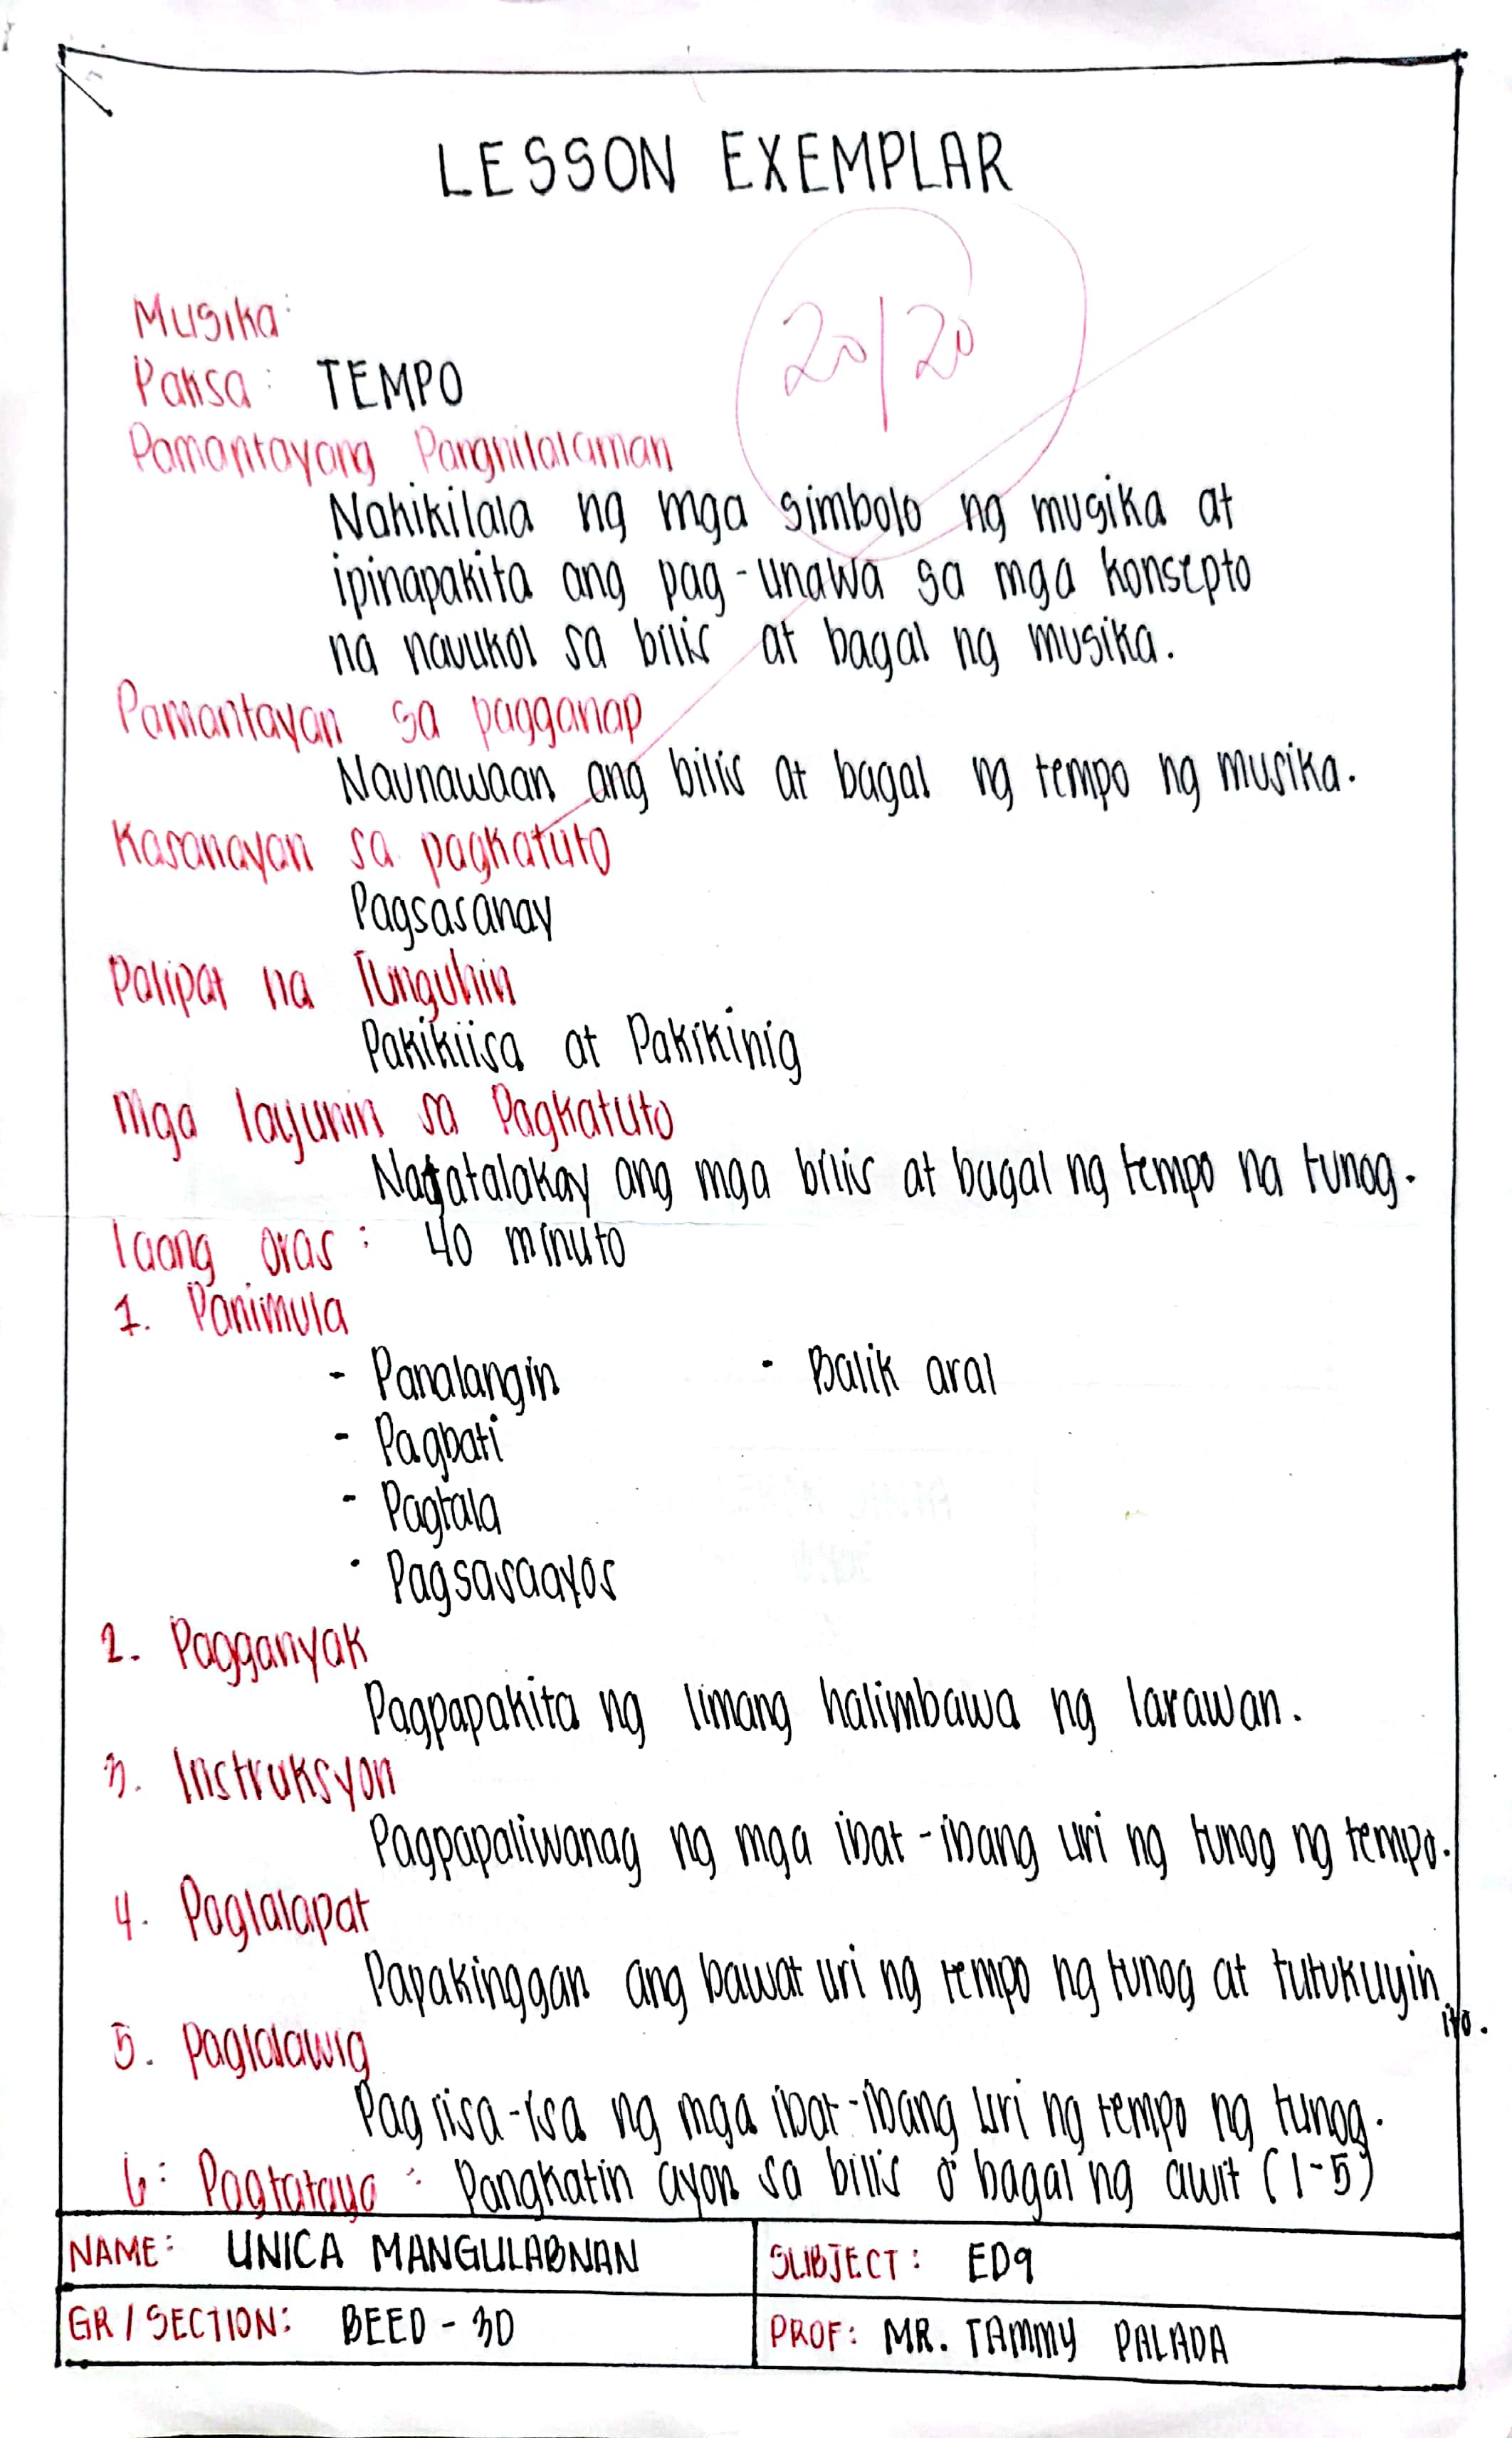 LESSON EXEMPLAR
20/20
Musika:
Paksa: TEMPO
Pamantayang Pangnilalaman
Nakikilala ng mga simbolo ng musika at
ipinapakita ang pag-unawa sa mga konsepto
na nauukol sa bilis at bagal ng musika.
Pamantayan sa pagganap
Naunawaan ang bilis at bagal ng tempo ng musika.
Kasanayan sa pagkatuto
Pagsasanay
Palipat na Tunguhin
Pakikiisa at Pakikinig
Mga layunin sa Pagkatuto
Natatalakay ang mga bilis at bagal ng tempo na tunog.
laang oras: 40 minuto
1. Panimula
- Panalangin - Balik aral
- Pagbati
- Pagtala
- Pagsasaayos
2. Pagganyak
Pagpapakita ng limang halimbawa ng larawan.
3. Instruksyon
Pagpapaliwanag ng mga ibat-ibang uri ng tunog ng tempo.
4. Paglalapat
Papakinggan ang bawat uri ng tempo ng tunog at tutukuyin
ito.
5. Paglalawig
Pag iisa-isa ng mga ibat-ibang uri ng tempo ng tunog.
6: Pagtataya: Pangkatin ayon sa bilis o bagal ng awit (1-5)
NAME: UNICA MANGULABNAN SUBJECT: ED9
GR/SECTION: BEED-3D PROF: MR. TAMMY PALADA